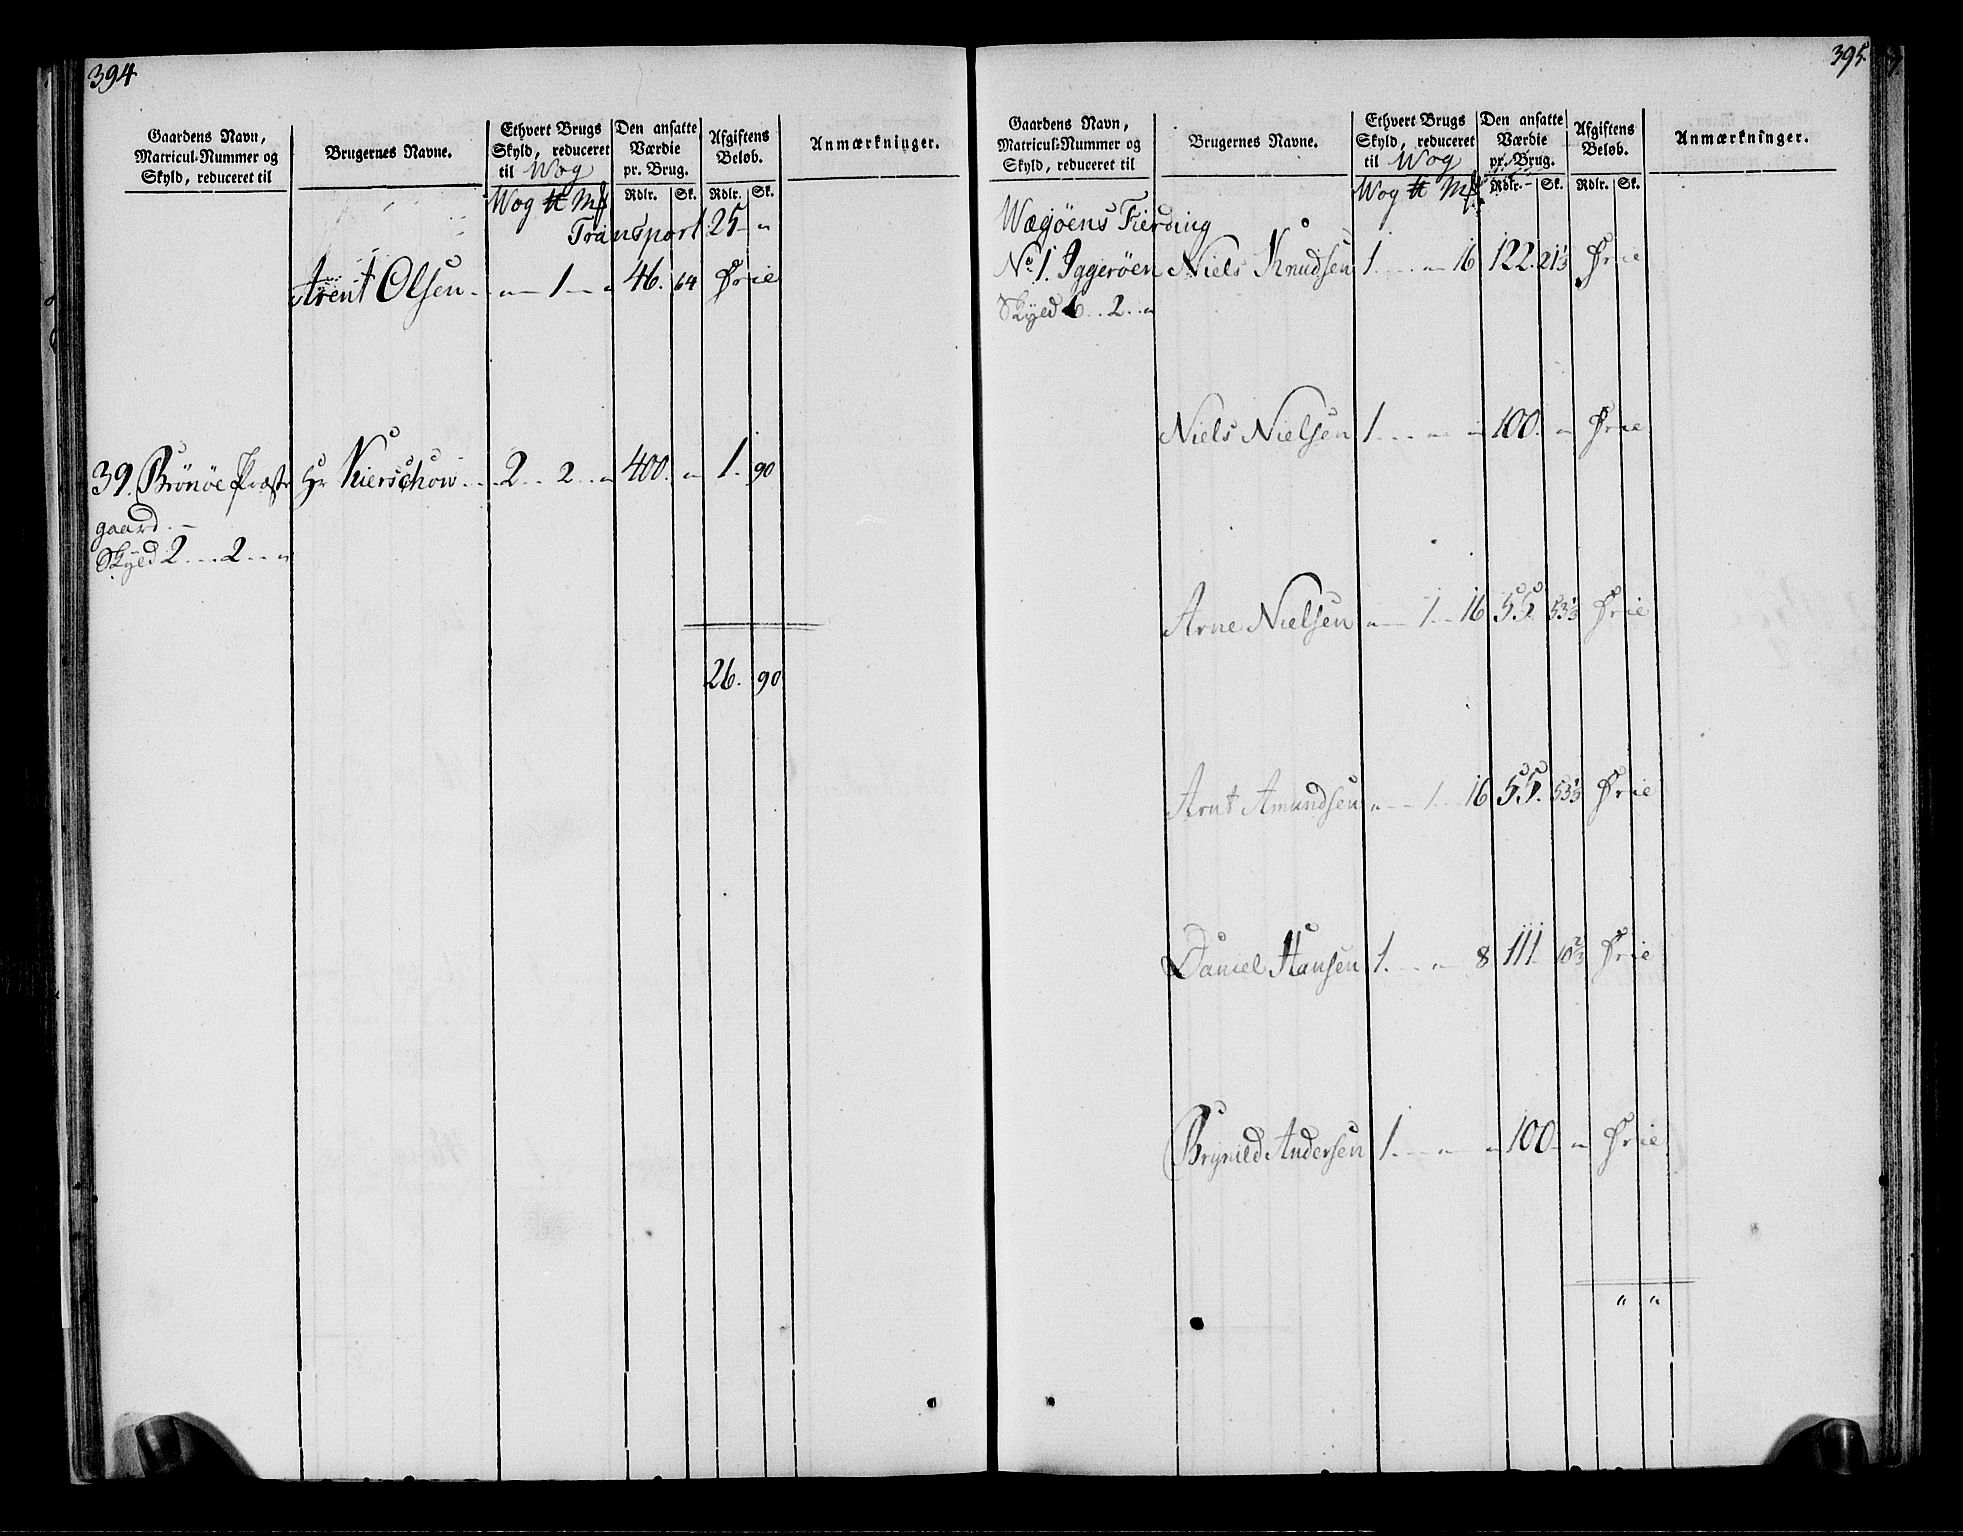 394
Gaardens Navn, Matricul-Nummer og Skyld, reduceret til
Brugernes Navne.
Ethvert Brugs Skyld, reduceret til Wog
Den ansatte Værdie pr. Brug.
Afgiftens Beløb.
Anmærkninger.
Wog ℔ Mk
Rdlr. Sk. Rdlr. Sk.
Transport 25 - "
Arent Olsen - " - 1 - " 46. 64 Frie
39. Brönöe Præste Hr Kierschow - 2 - 2 - " 400. " 1. 90
gaard. -
Skyld 2 - 2 - "
26. 90
395.
Gaardens Navn, Matricul-Nummer og Skyld, reduceret til
Brugernes Navne.
Ethvert Brugs Skyld, reduceret til Wog
Den ansatte Værdie pr. Brug.
Afgiftens Beløb.
Anmærkninger.
Wog ℔ Mk
Rdlr. Sk. Rdlr. Sk.
Wægöens Fierding
No 1. Iggeröen Niels Knudsen 1 - " 16 122. 21⅓ Frie
Skyld 6 - 2 - "
Niels Nielsen 1 - " " 100. " Frie
Arne Nielsen " - 1 - 16 55. 53⅓ Frie
Arnt Amundsen " - 1 - 16 55. 53⅓ Frie
Daniel Hansen 1. - " 8 111 10⅔ Frie
Brynild Andersen 1. - " " 100. " Frie
" "